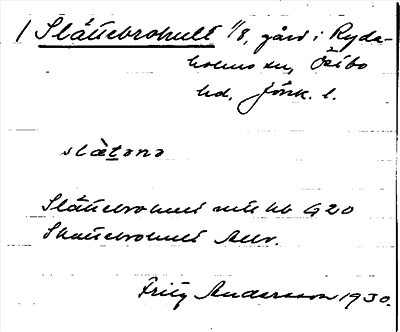 / Slättebrohult 1/8, gård i Ryda-
holms sn, Östbo
hd, Jönk. l.
slätənə
Slättebrohult mtl kb G20
Skattebrohult Allv.
Fritz Andersson 1930.